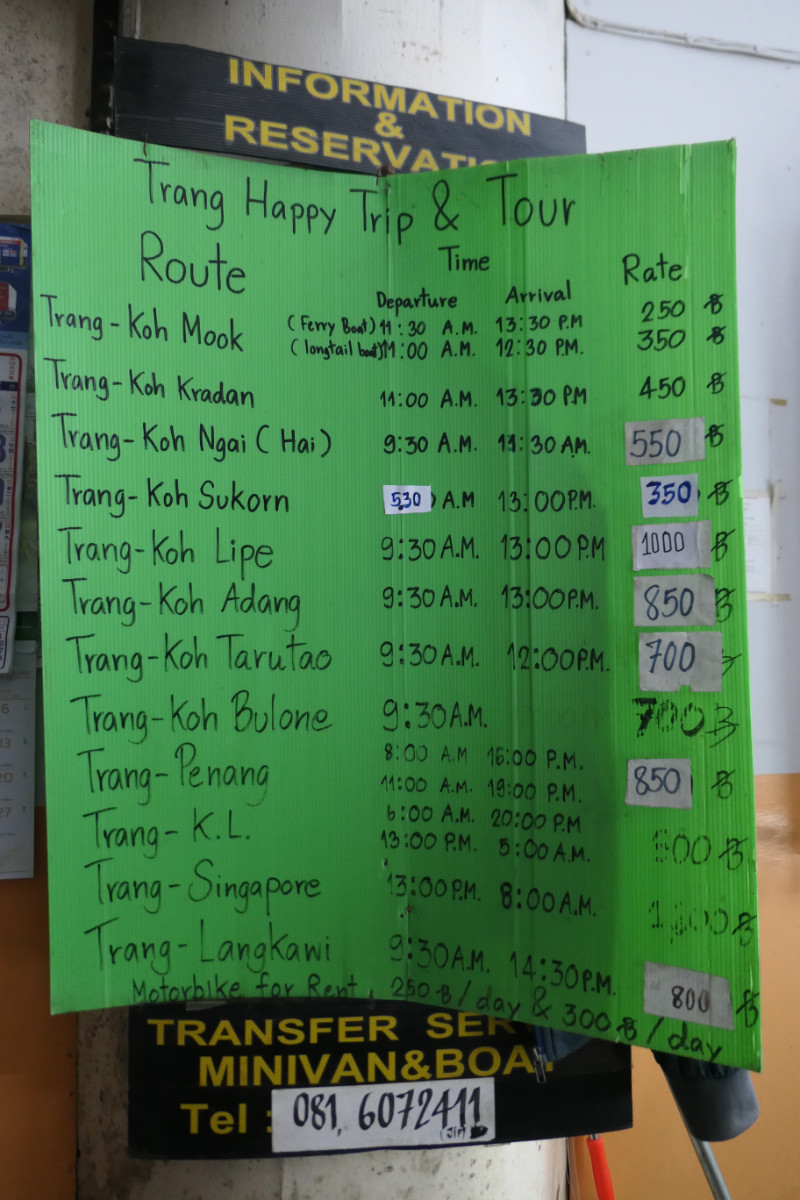 INFORMATION
&
Trang Happy Trip & Tour
Route Time Rate
Departure Arrival
Trang-Koh Mook (Ferry Boat) 11:30 A.M. 13:30 P.M 250 ฿
(longtail boat) 11:00 A.M. 12:30 P.M. 350 ฿
Trang-Koh Kradan 11:00 A.M. 13:30 PM 450 ฿
Trang-Koh Ngai (Hai) 9:30 A.M. 11:30 AM. 550 ฿
Trang-Koh Sukorn 530 A.M 13:00 P.M. 350 ฿
Trang-Koh Lipe 9:30 A.M. 13:00 P.M 1000 ฿
Trang-Koh Adang 9:30 A.M. 13:00 P.M. 850 ฿
Trang-Koh Tarutao 9:30 A.M. 12:00 P.M. 700
Trang-Koh Bulone 9:30 A.M. 700 ฿
Trang-Penang 8:00 A.M 16:00 P.M. 850 ฿
11:00 A.M. 19:00 P.M.
Trang-K.L. 6:00 A.M. 20:00 P.M
13:00 P.M. 5:00 A.M. 00 ฿
Trang-Singapore 13:00 P.M. 8:00 A.M.
Trang-Langkawi 9:30 A.M. 14:30 P.M. 800 ฿
Motorbike for Rent 250 ฿/day & 300 ฿/day
TRANSFER
MINIVAN&
Tel : 081, 6072411